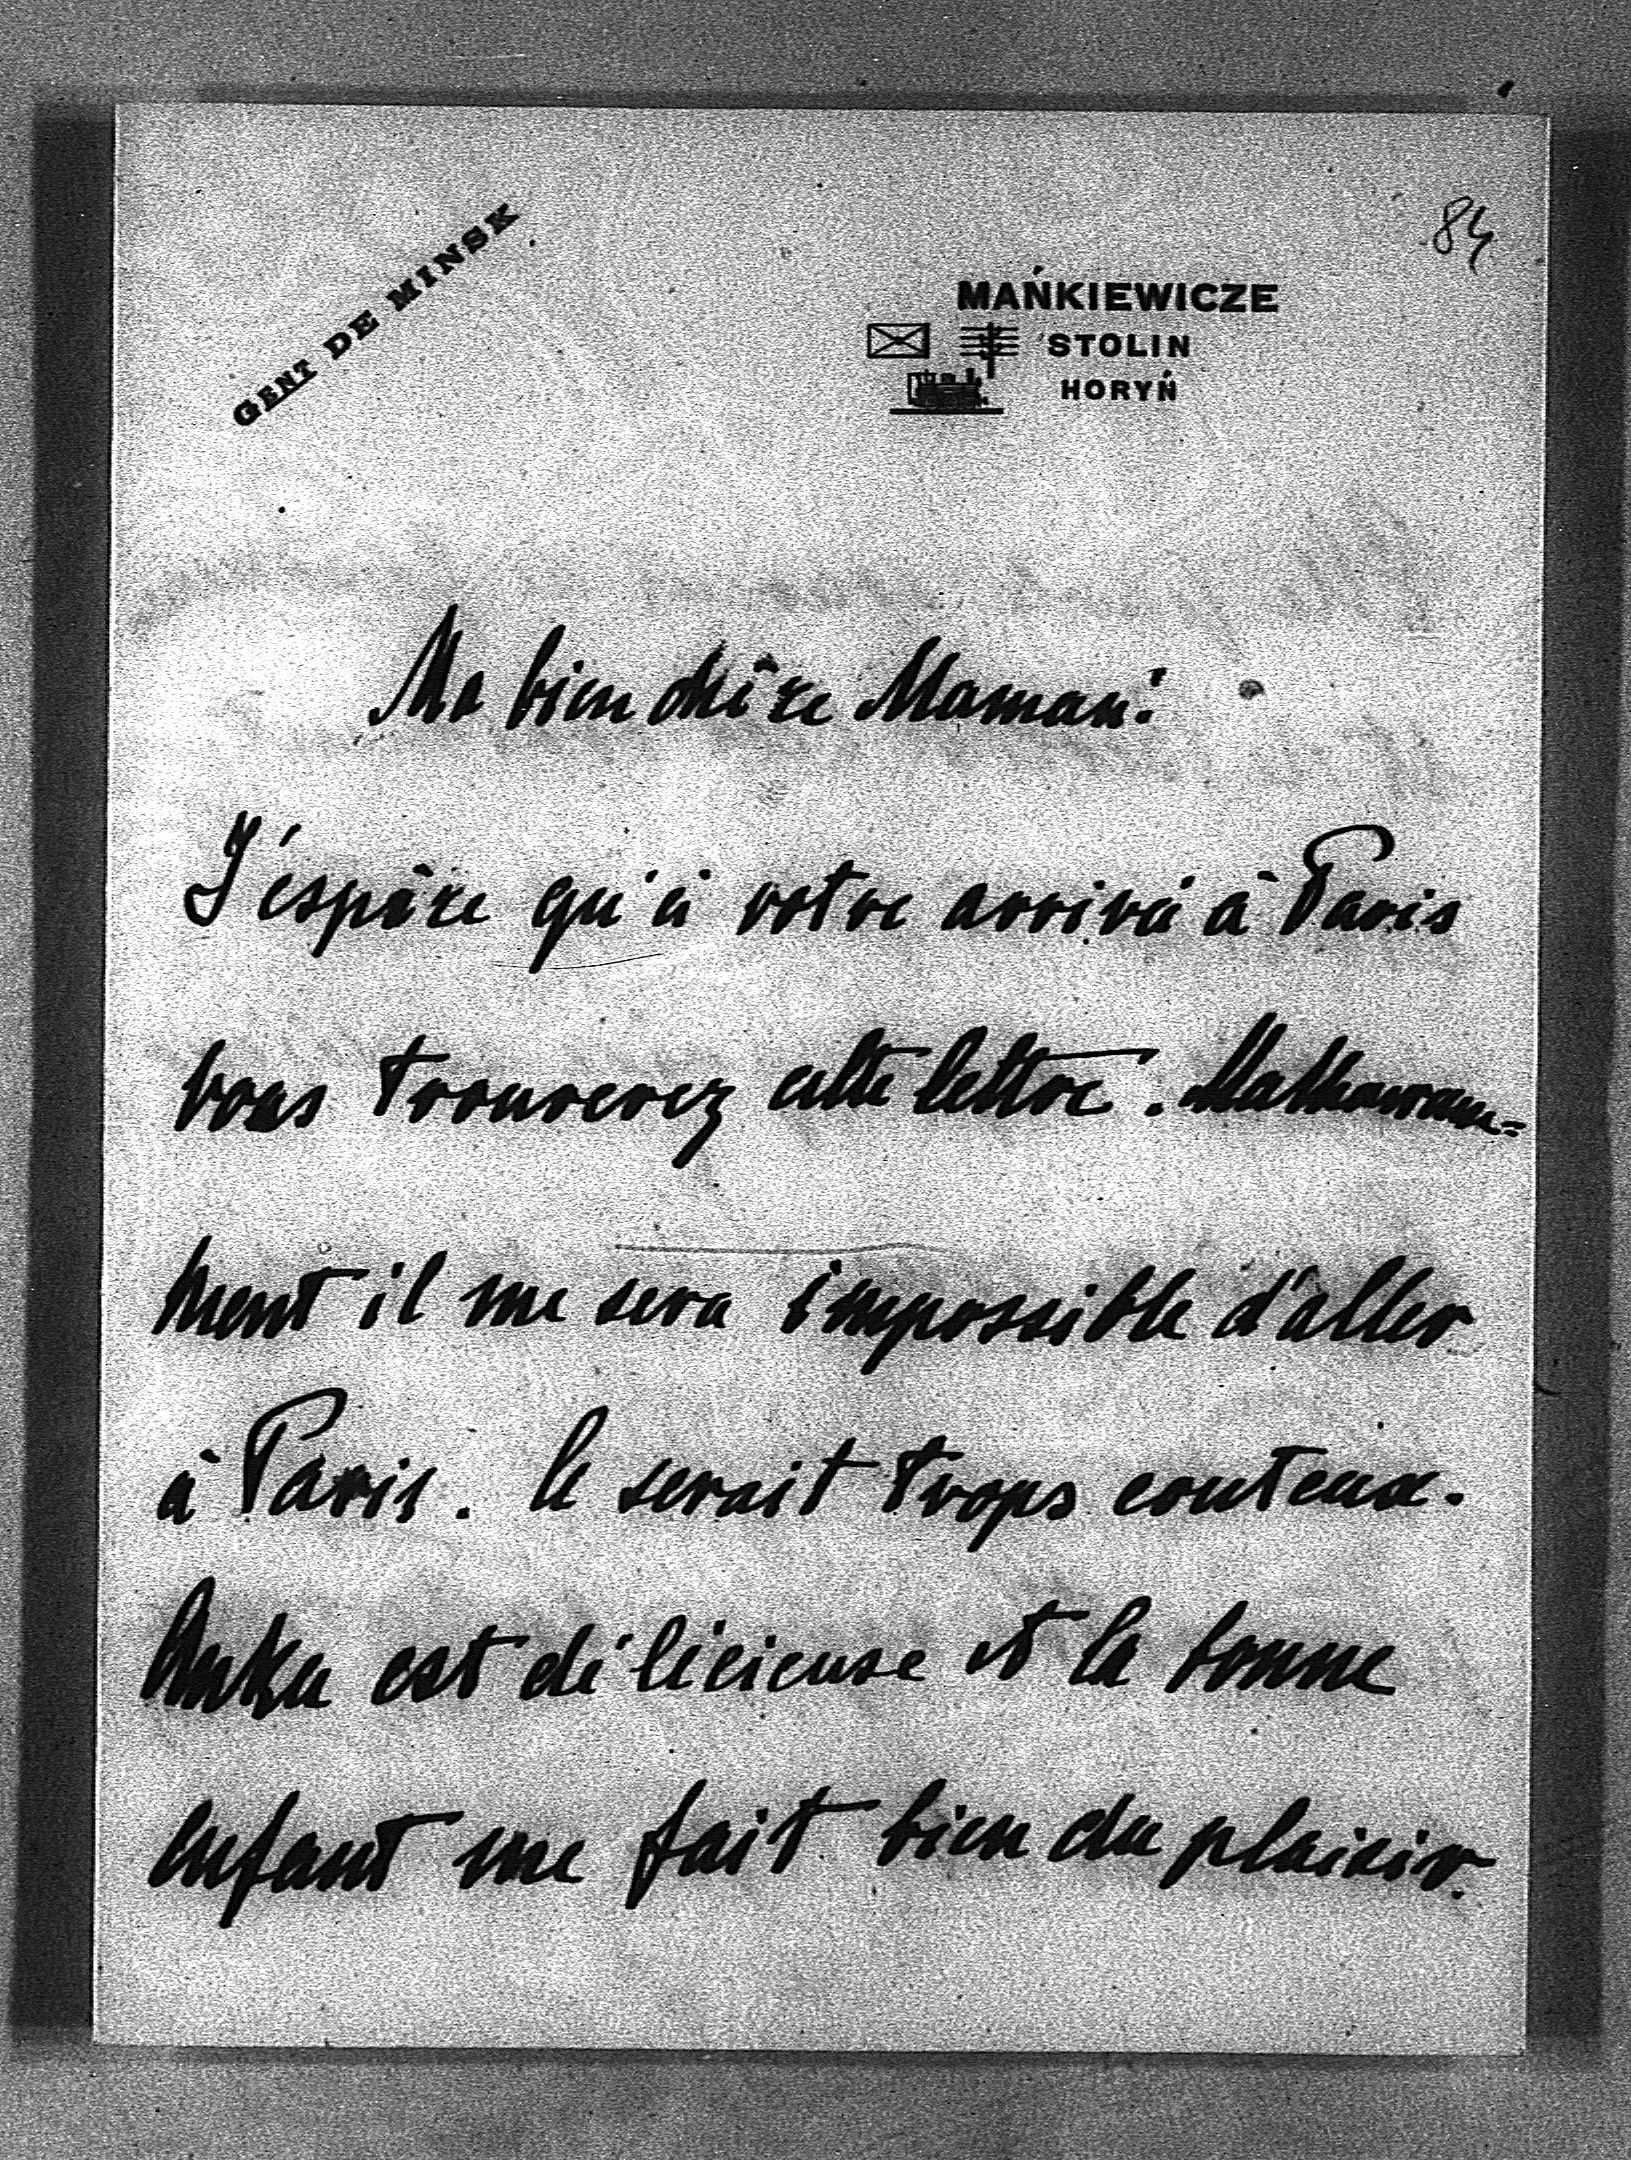 84
GENT DE MINSK
MAŃKIEWICZE
STOLIN
HORYŃ
Ma bien chère Maman!
J'éspère qu'à votre arrivé à Paris
vous trouverez cette lettre. Malheureuse=
ment il me sera impossible d'aller
à Paris. Ce serait trops couteux.
Anka est délicieuse et la bonne
enfant me fait bien du plaisir.